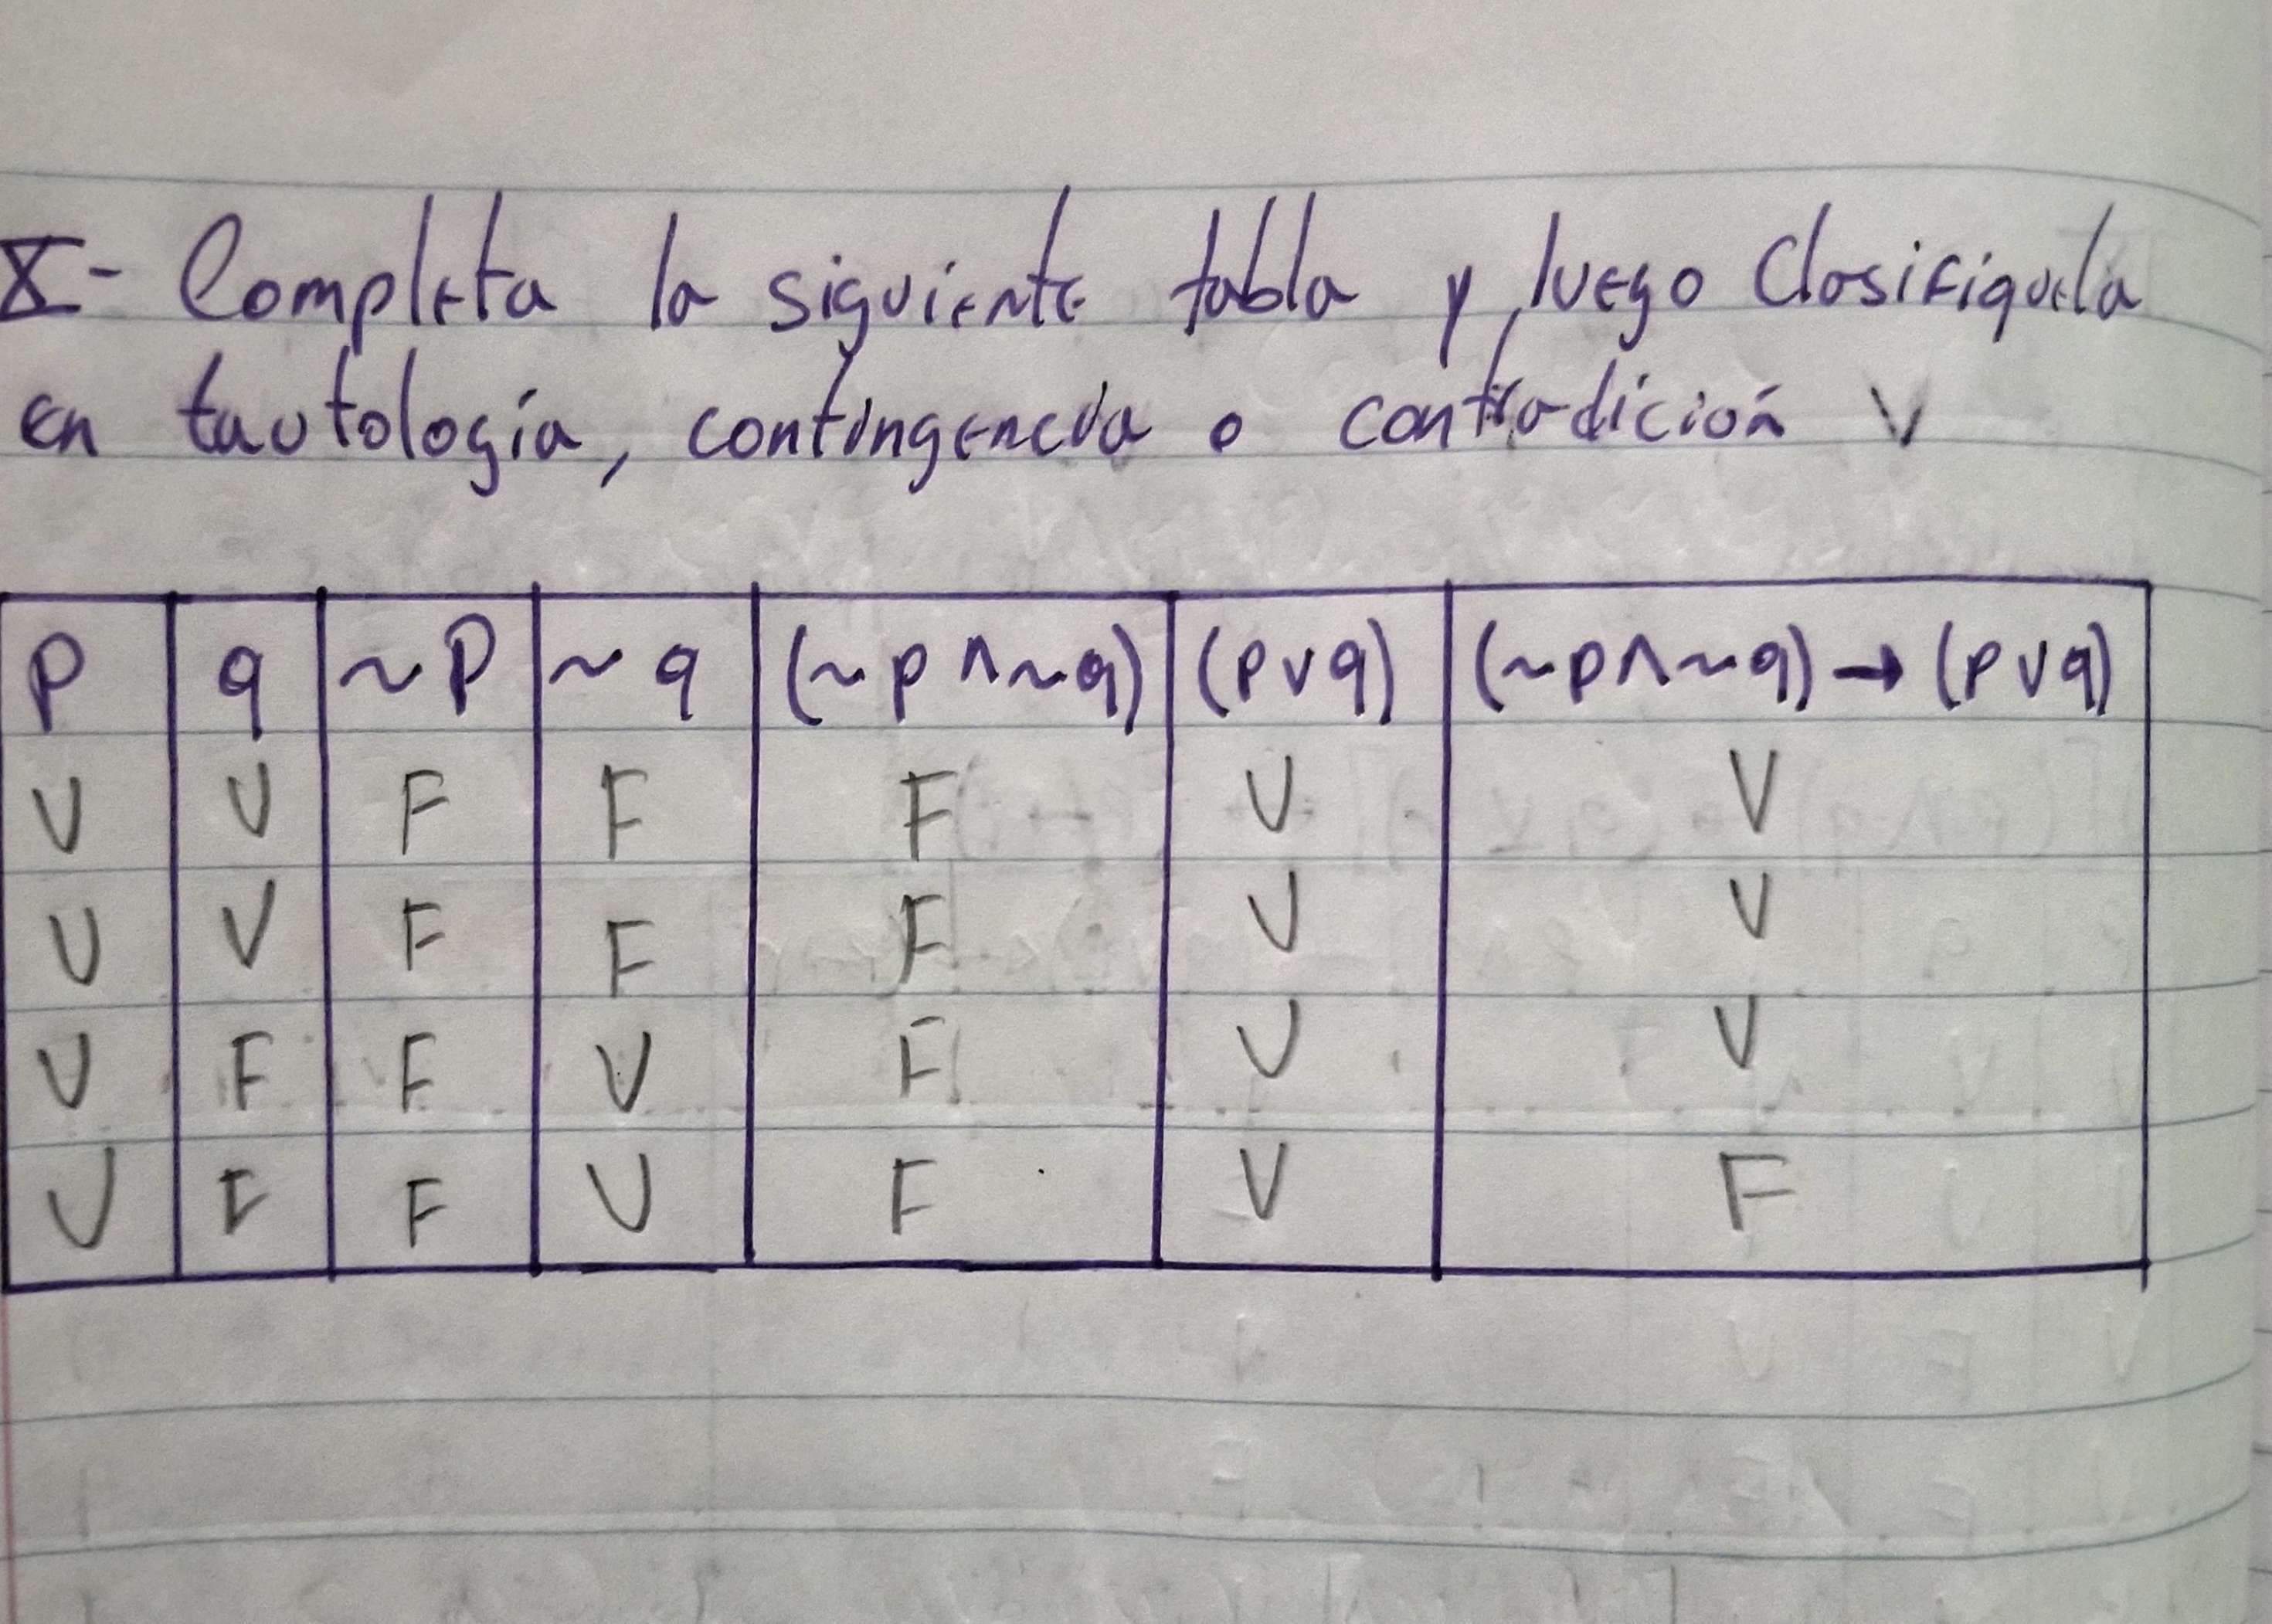 X- Completa la siguiente tabla y luego Clasifiquela
en tautología, contingencia o contradición V
P q ~P ~q (~p∧~q) (p∨q) (~p∧~q)→(p∨q)
V V F F F V V
V V F F F V V
V F F V F V V
V F F V F V F